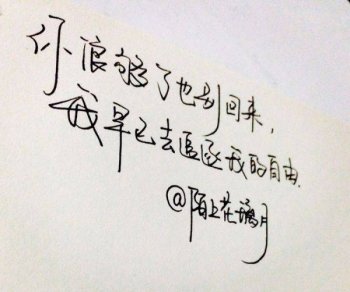 你浪够了也别回来，
我早已去追逐我的自由.
@陌上花璃月